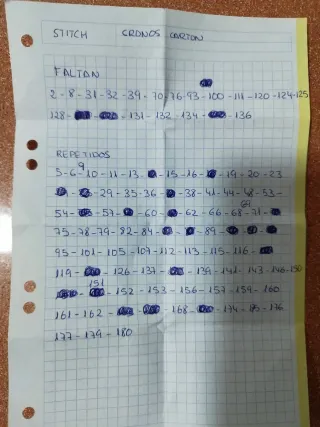 STITCH CRONOS CARTON
FALTAN
2-8-31-32-39-70-76-93-100-111-120-124-125
128- -131-132-134- -136
REPETIDOS
9
5-6-10-11-13- -15-16- -19-20-23
-29-35-36- -38-41-44-48-53-
54- -57- -60- -62-66-68-71-
75-78-79-82-84- - -89- -
95-101-105-107-112-113-115-116-
119- -126-137- -139-141-143-148-150
151
-152-153-156-157-159-160
161-162- - -168- -174- -176
177-179-180